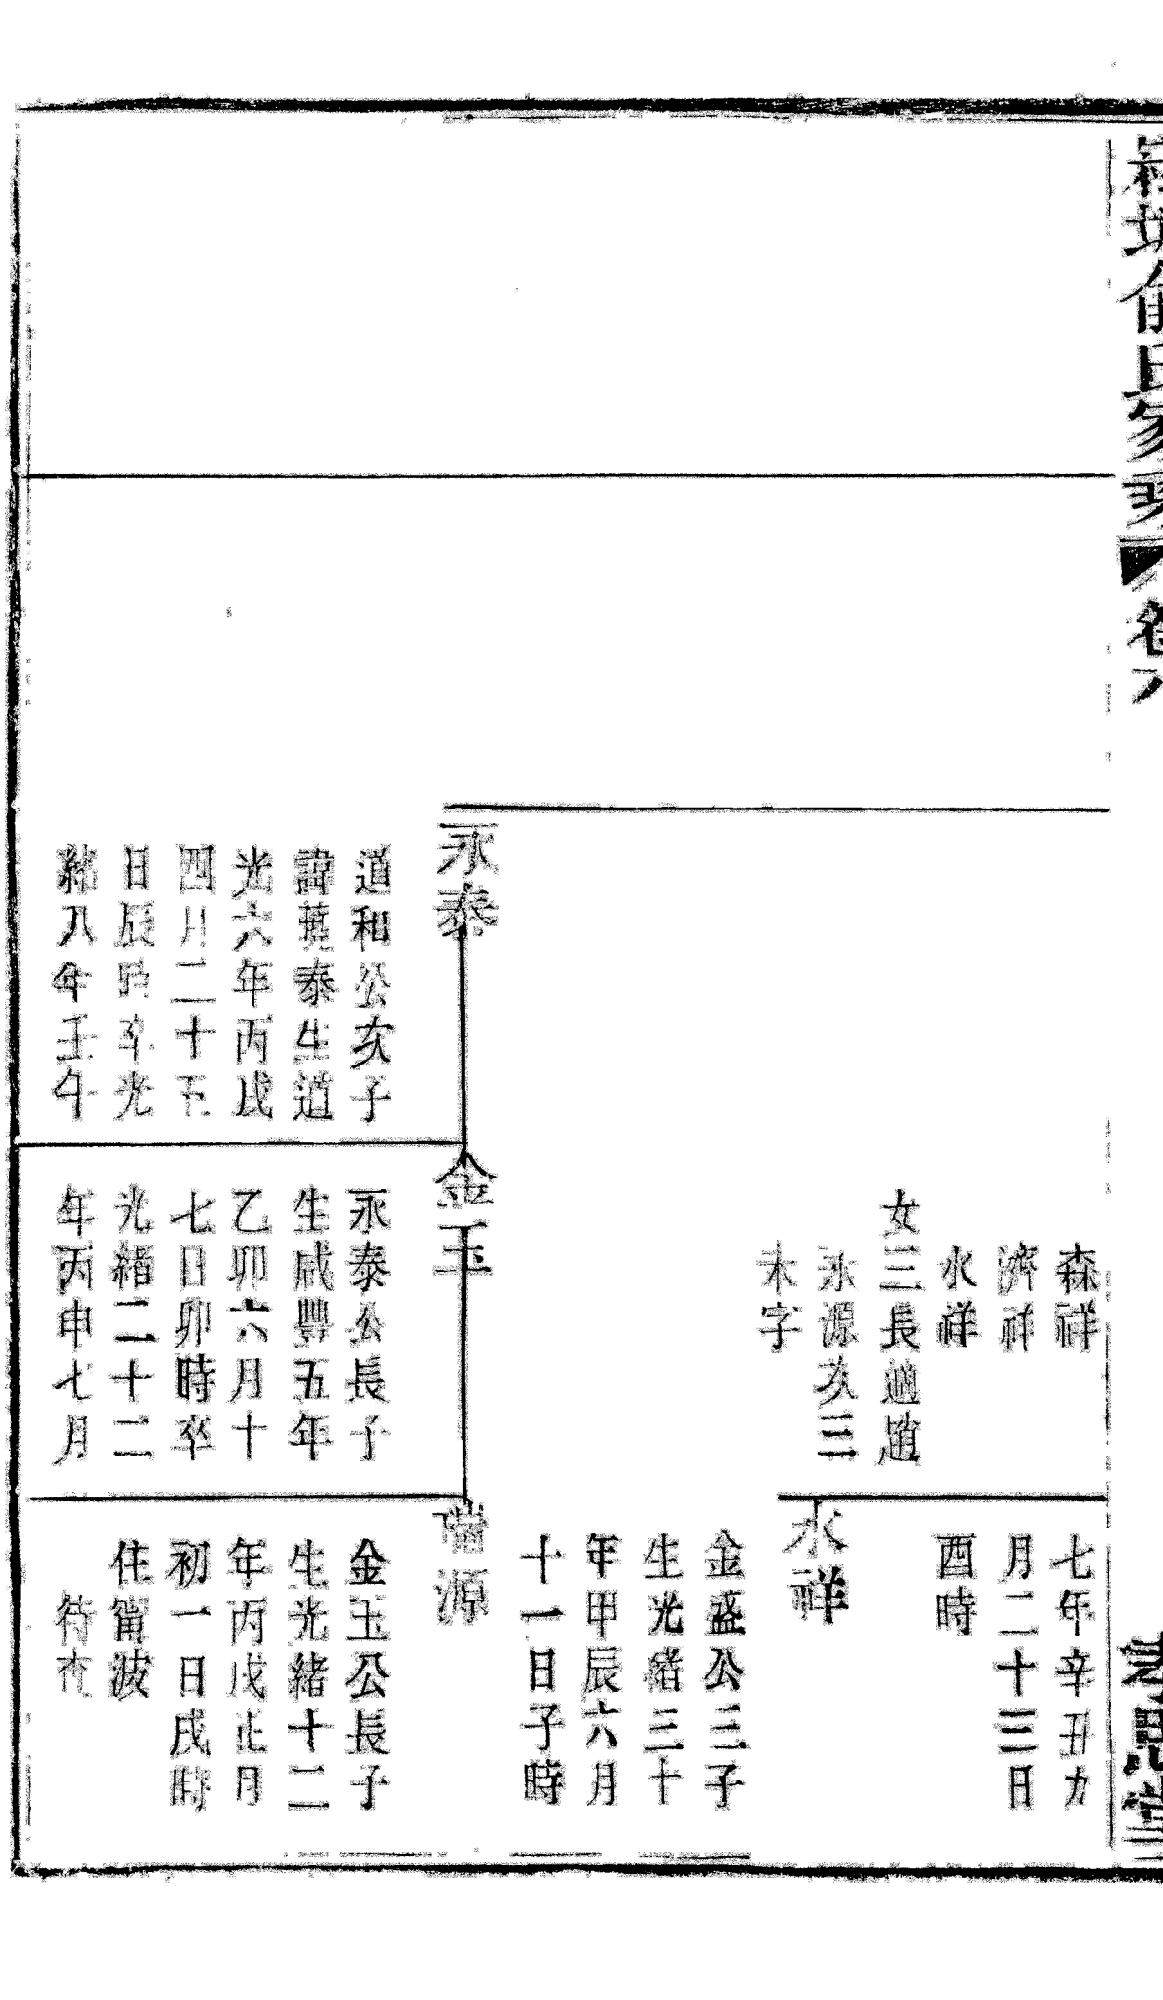 氏家
卷
永泰
道和公次子
諱 泰生道
光六年丙戌
四月二十五
日辰時卒光
緒八年壬午
森祥
濟祥
水祥
女三長適趙
永源次三
未字
金玉
永泰公長子
生咸豐五年
乙卯六月十
七日卯時卒
光緒二十二
年丙申七月
七年辛丑九
月二十三日
酉時
水祥
金盛公三子
生光緒三十
年甲辰六月
十一日子時
瑞源
金玉公長子
生光緒十二
年丙戌正月
初一日戌時
住甯波
待查